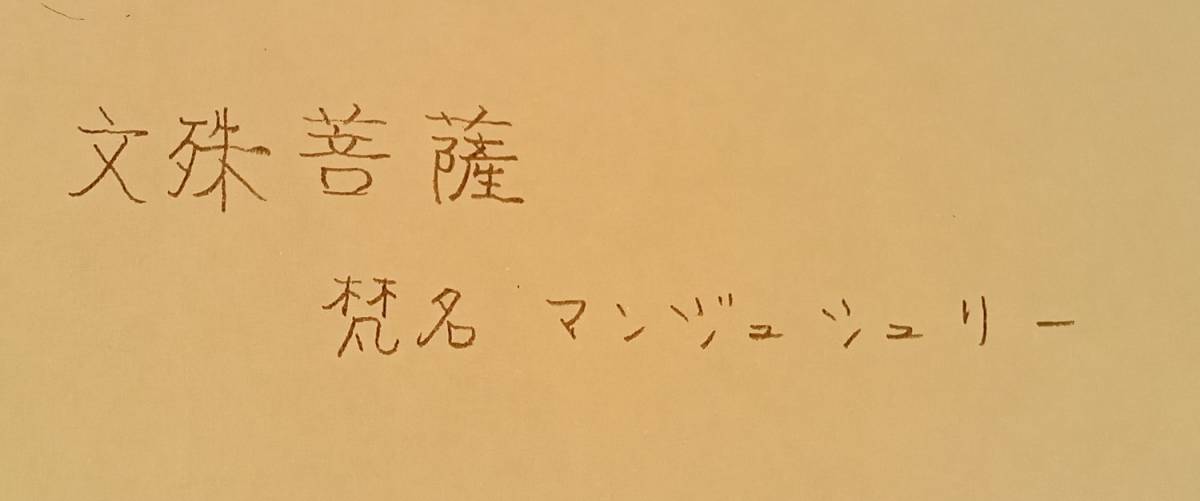 文殊菩薩
梵名 マンジュシュリー